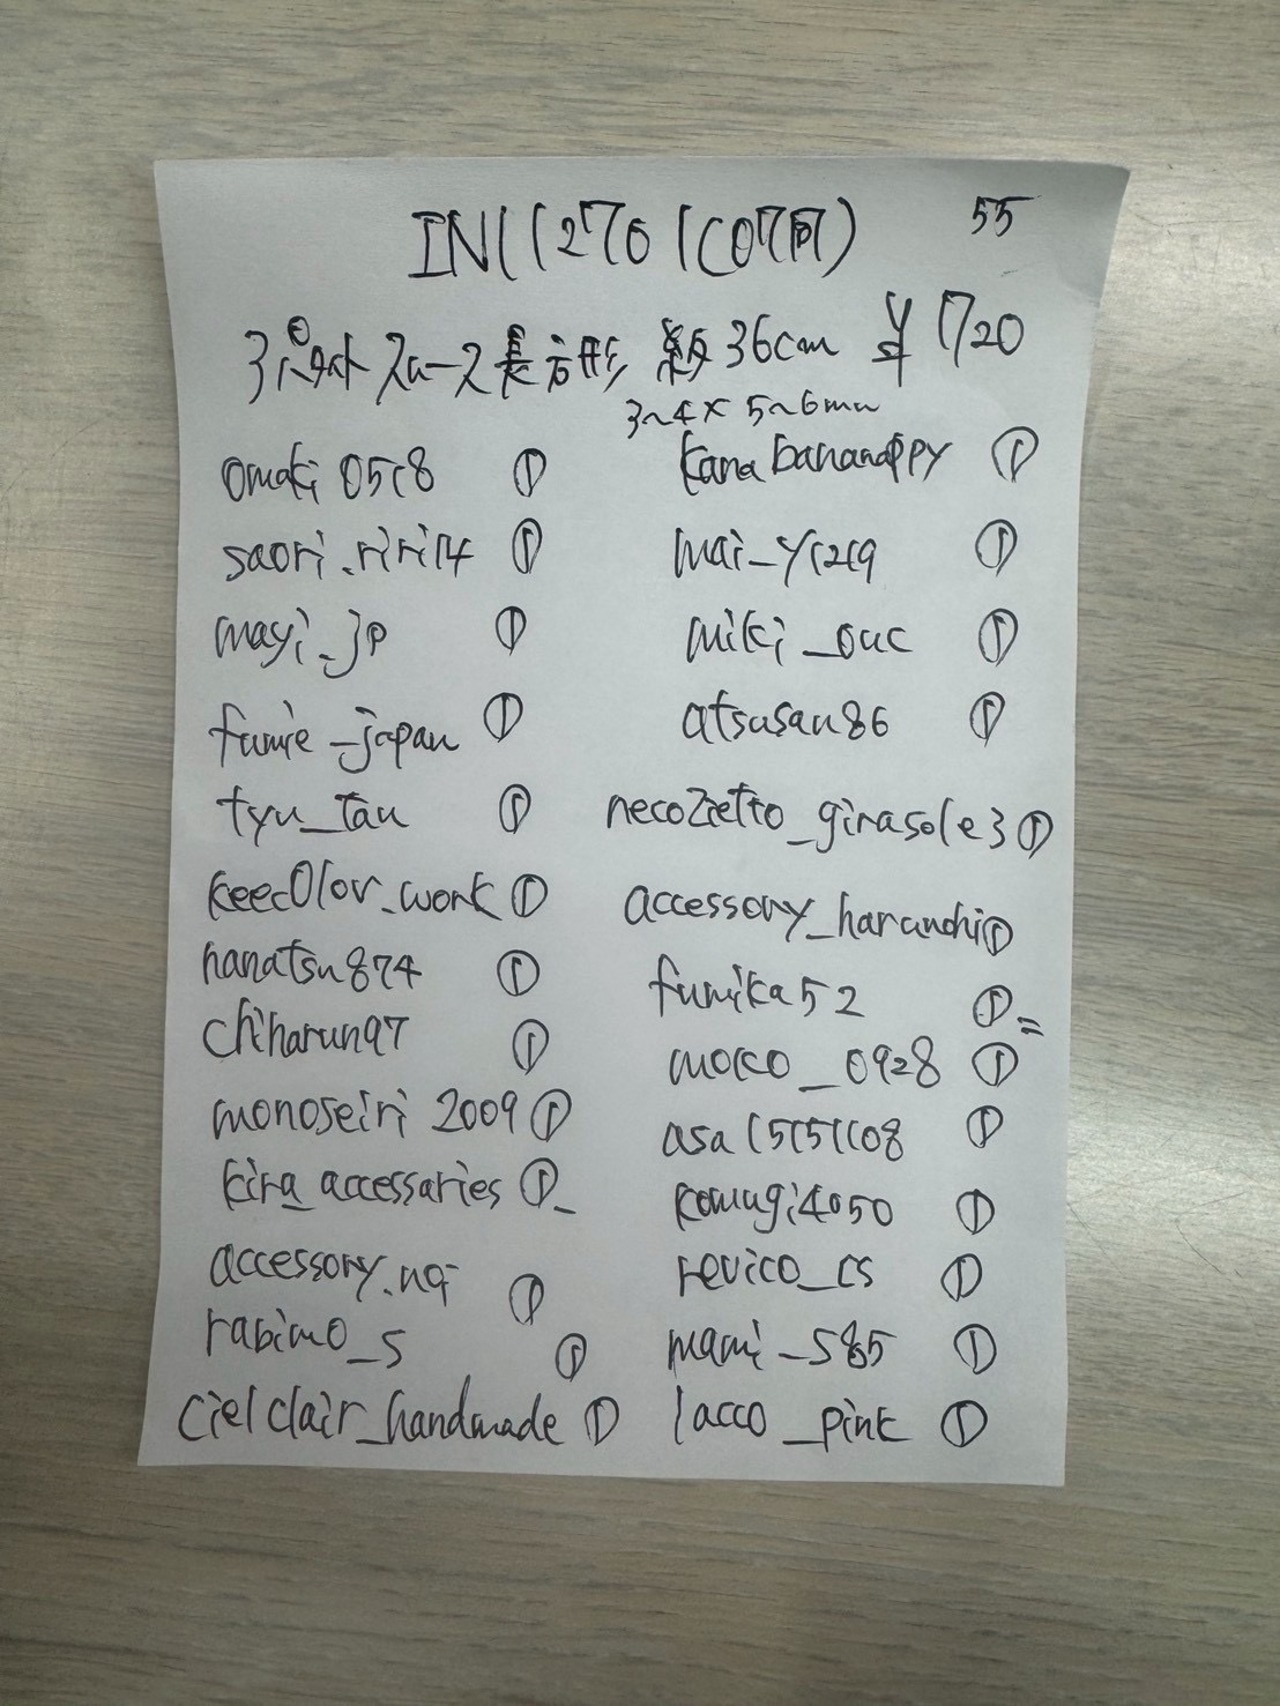 55
3~4×5~6mm
36cm ¥1720
omaki0518 ①
saori.riri14 ①
mayi_jp ①
fumie_japan ①
tyu_tau ①
keecolor_work ①
hanatsu874 ①
chiharun97 ①
monoseiri2009 ①
kira_accessaries ①
accessory.nqi ①
rabimo_s ①
cielclair_handmade ①
kanabananappy ①
mai_y1219 ①
miki_ouc ①
atsusan86 ①
necozietto_girasole3 ①
accessory_harunohi ①
fumika52 ①
moko_0928 ①
asa15151108 ①
komugi4050 ①
revico_cs ①
mami_s85 ①
lacco_pink ①